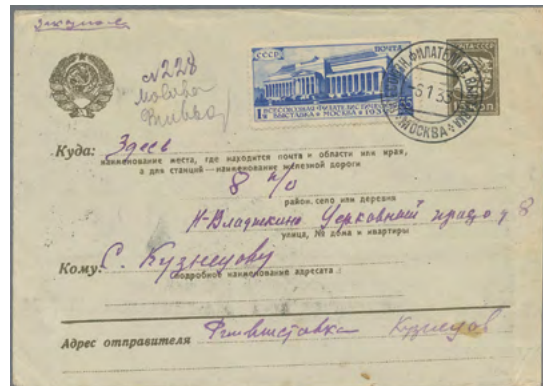 заказное
№ 228
Москва
СССР ПОЧТА
ВСЕСОЮЗНАЯ ФИЛАТЕЛИСТИЧЕСКАЯ
ВЫСТАВКА • МОСКВА • 1932
6 1 33
МОСКВА
Куда: Здесь
наименование места, где находится почта и области или края,
а для станций—наименование железной дороги
8 п/о
район, село или деревня
Н-Владыкино Церковный д 8
улица, № дома и квартиры
Кому: С. Кузнецову
подробное наименование адресата
Адрес отправителя Филвыставка Кузнецов